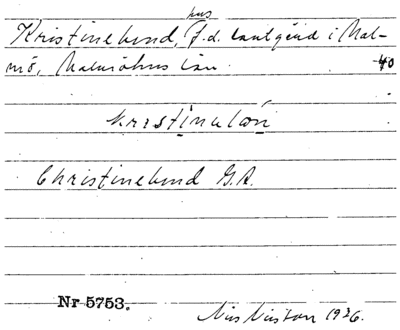 hus
Kristinelund, f.d. lantgård i Mal-
mö, Malmöhus län. 40
Christinelund G.A.
Nr 5753.
Nils Nilsson 1926.